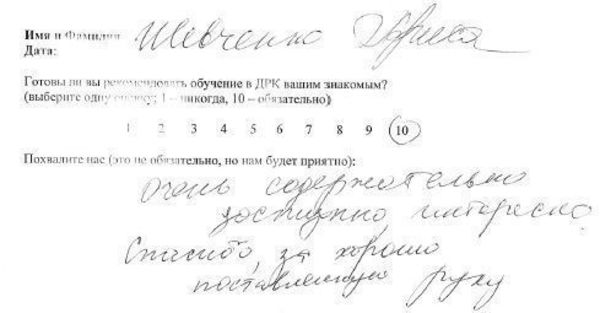 Имя и Фамилия Шевченко
Дата:
Готовы ли вы рекомендовать обучение в ДРК вашим знакомым?
(выберите одну оценку; 1 – никогда, 10 – обязательно)
1 2 3 4 5 6 7 8 9 10
Похвалите нас (это не обязательно, но нам будет приятно):
очень содержательно
доступно, интересно.
Спасибо, за хорошо
поставленную руку